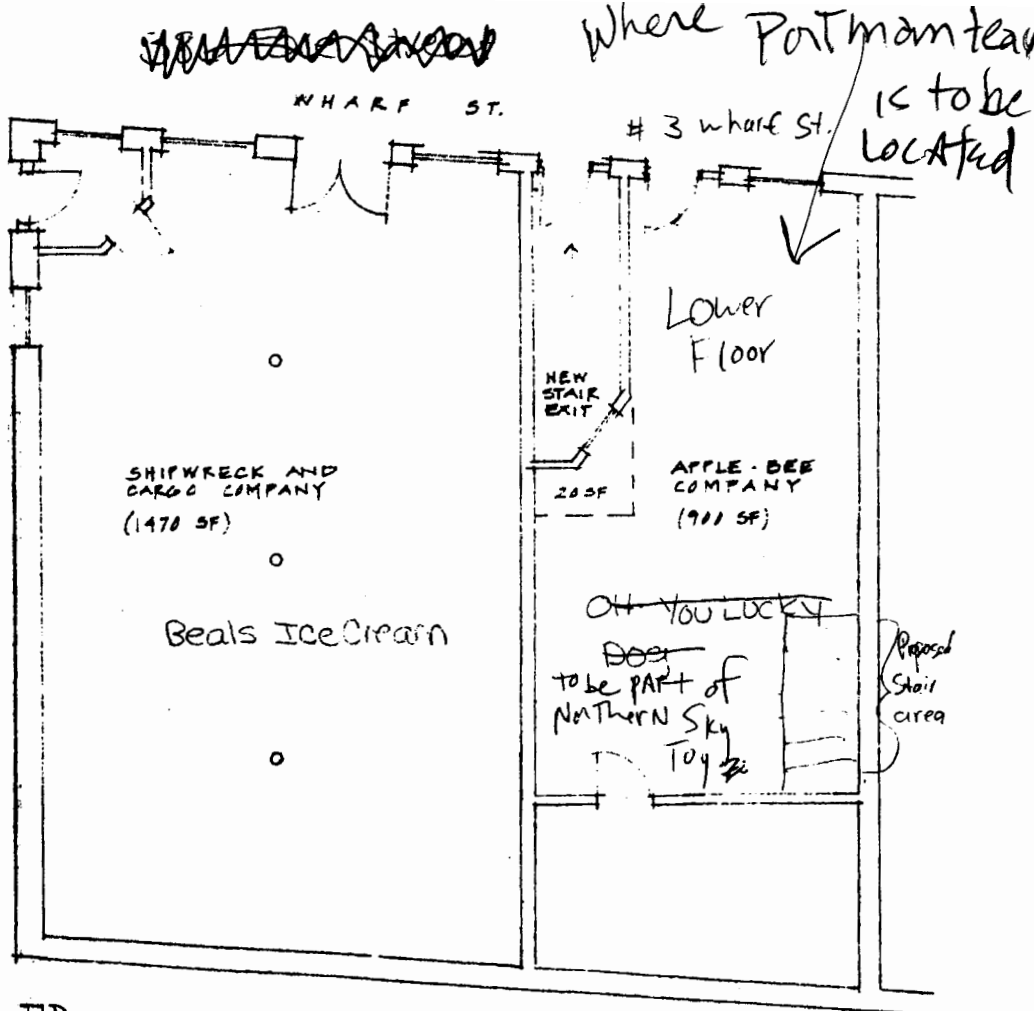 Where Portmanteau
is to be
Located
WHARF ST.
# 3 wharf St.
Lower
Floor
NEW
STAIR
EXIT
SHIPWRECK AND
CARGO COMPANY
(1470 SF)
20 SF
APPLE-BEE
COMPANY
(900 SF)
OH YOU LUCKY
Dog
to be PART of
NorTherN Sky
Toyz
Beals Ice Cream
Proposed
Stair
area